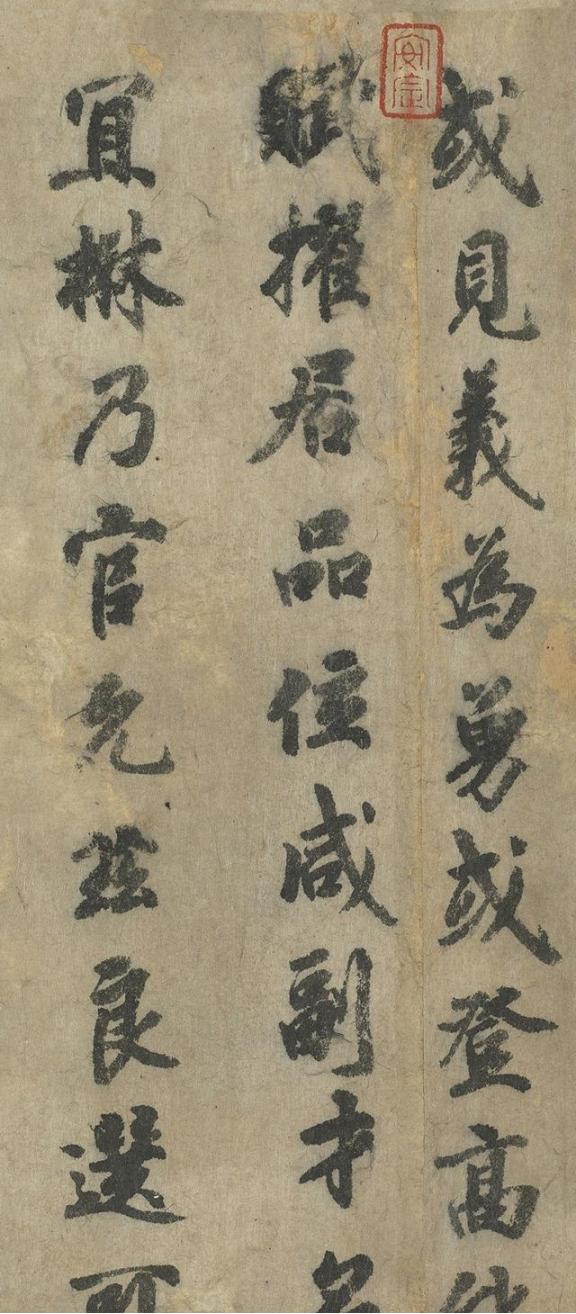 或見義為勇或登高能
賦擢居品位咸副才名
宜楙乃官允茲良選可